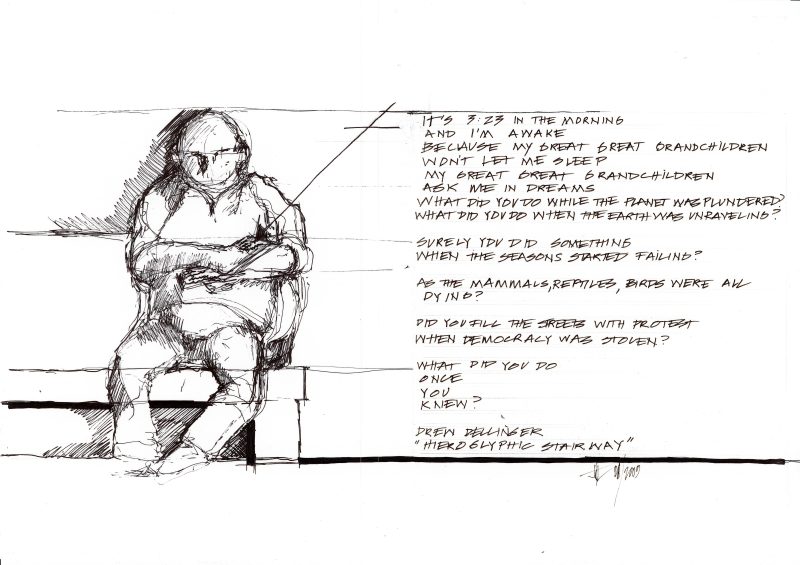 IT'S 3:23 IN THE MORNING
AND I'M AWAKE
BECAUSE MY GREAT GREAT GRANDCHILDREN
WON'T LET ME SLEEP
MY GREAT GREAT GRANDCHILDREN
ASK ME IN DREAMS
WHAT DID YOU DO WHILE THE PLANET WAS PLUNDERED?
WHAT DID YOU DO WHEN THE EARTH WAS UNRAVELING?
SURELY YOU DID SOMETHING
WHEN THE SEASONS STARTED FAILING?
AS THE MAMMALS, REPTILES, BIRDS WERE ALL
DYING?
DID YOU FILL THE STREETS WITH PROTEST
WHEN DEMOCRACY WAS STOLEN?
WHAT DID YOU DO
ONCE
YOU
KNEW?
DREW DELLINGER
"HIEROGLYPHIC STAIRWAY"